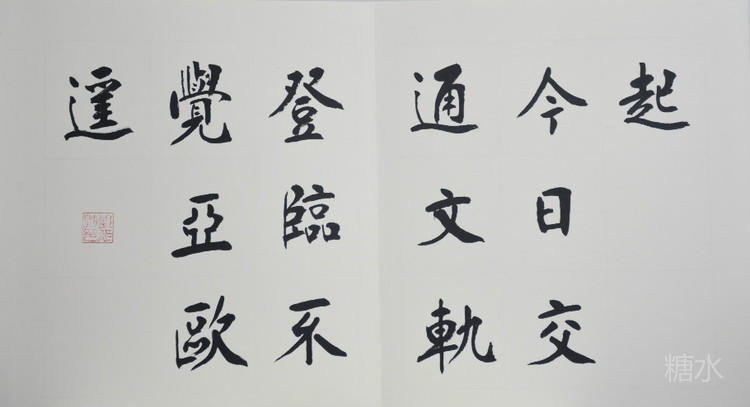 起
今日交
通文軌
登臨不
覺亞歐
遥
糖水